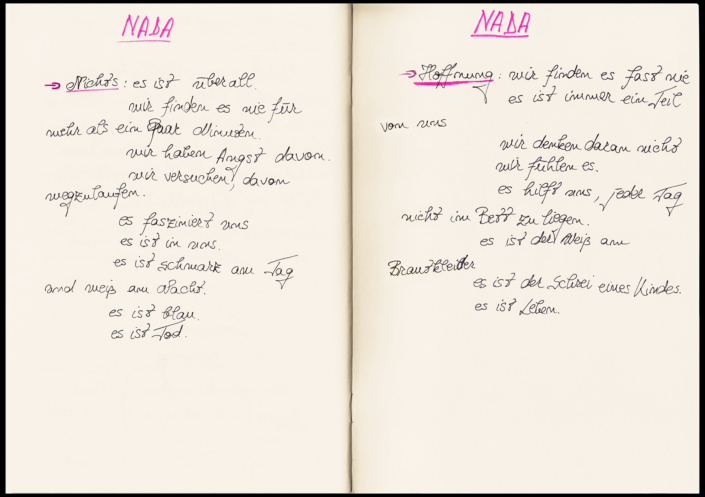 NADA
→ Nichts: es ist überall.
wir finden es nie für
mehr als ein Paar Minuten.
wir haben Angst davon.
wir versuchen, davon
wegzulaufen.
es fasziniert uns
es ist in uns.
es ist schwarz am Tag
und weiß am Nacht.
es ist blau.
es ist Tod.
NADA
→ Hoffnung: wir finden es fast nie
es ist immer ein Teil
von uns
wir denken daran nicht
wir fühlen es.
es hilft uns, jeder Tag
nicht im Bett zu liegen.
es ist der Weiß am
Brautkleider
es ist der Schrei eines Kindes.
es ist Leben.